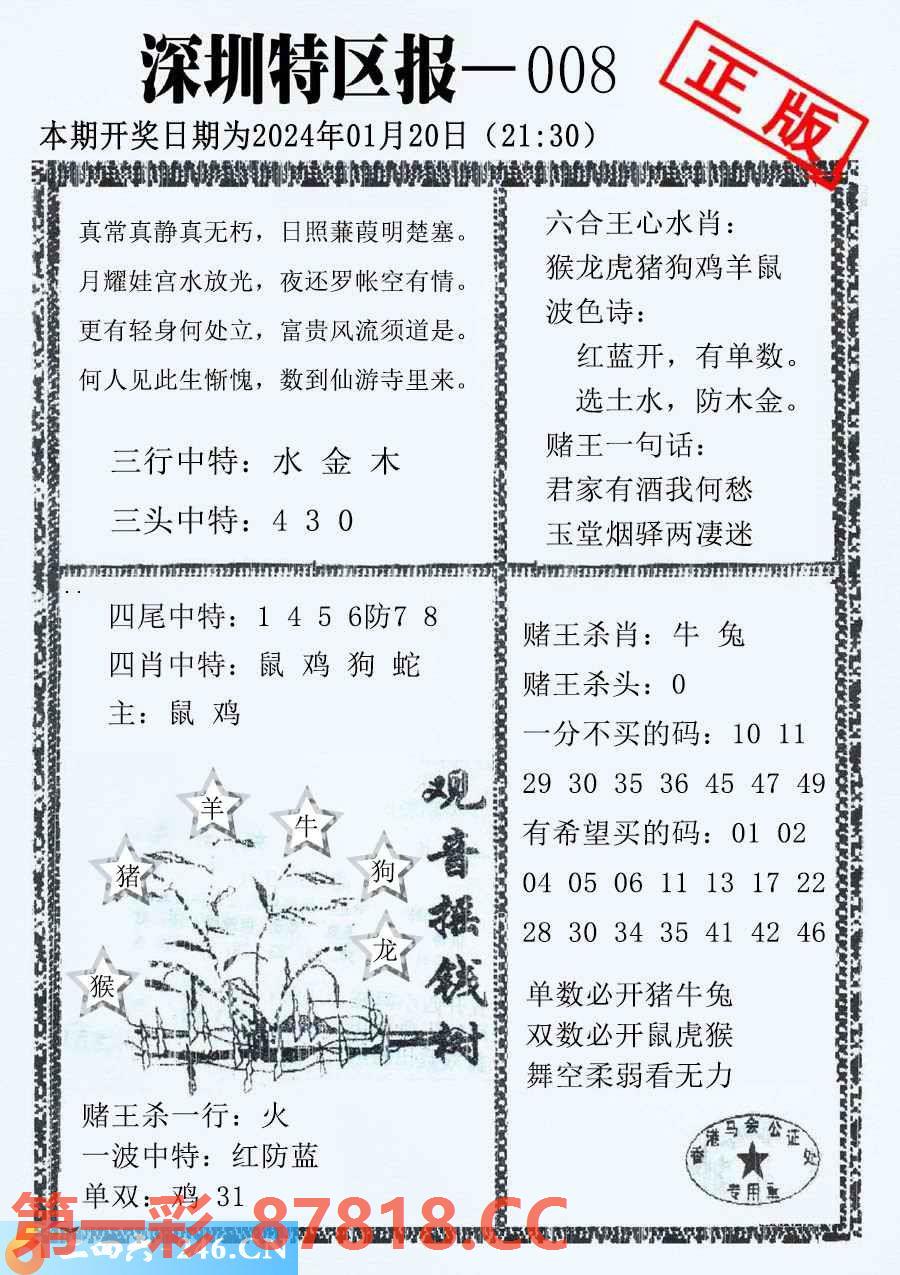 深圳特区报—008
正版
本期开奖日期为2024年01月20日（21:30）
真常真静真无朽，日照蒹葭明楚塞。
月耀娃宫水放光，夜还罗帐空有情。
更有轻身何处立，富贵风流须道是。
何人见此生惭愧，数到仙游寺里来。
三行中特：水 金 木
三头中特：4 3 0
六合王心水肖：
猴龙虎猪狗鸡羊鼠
波色诗：
红蓝开，有单数。
选土水，防木金。
赌王一句话：
君家有酒我何愁
玉堂烟驿两凄迷
四尾中特：1 4 5 6防7 8
四肖中特：鼠 鸡 狗 蛇
主：鼠 鸡
羊
牛
猪
狗
龙
猴
观音摇钱树
赌王杀一行：火
一波中特：红防蓝
单双：鸡 31
赌王杀肖：牛 兔
赌王杀头：0
一分不买的码：10 11
29 30 35 36 45 47 49
有希望买的码：01 02
04 05 06 11 13 17 22
28 30 34 35 41 42 46
单数必开猪牛兔
双数必开鼠虎猴
舞空柔弱看无力
香港马会公证处
专用章
第一彩 87818.CC
246.CN